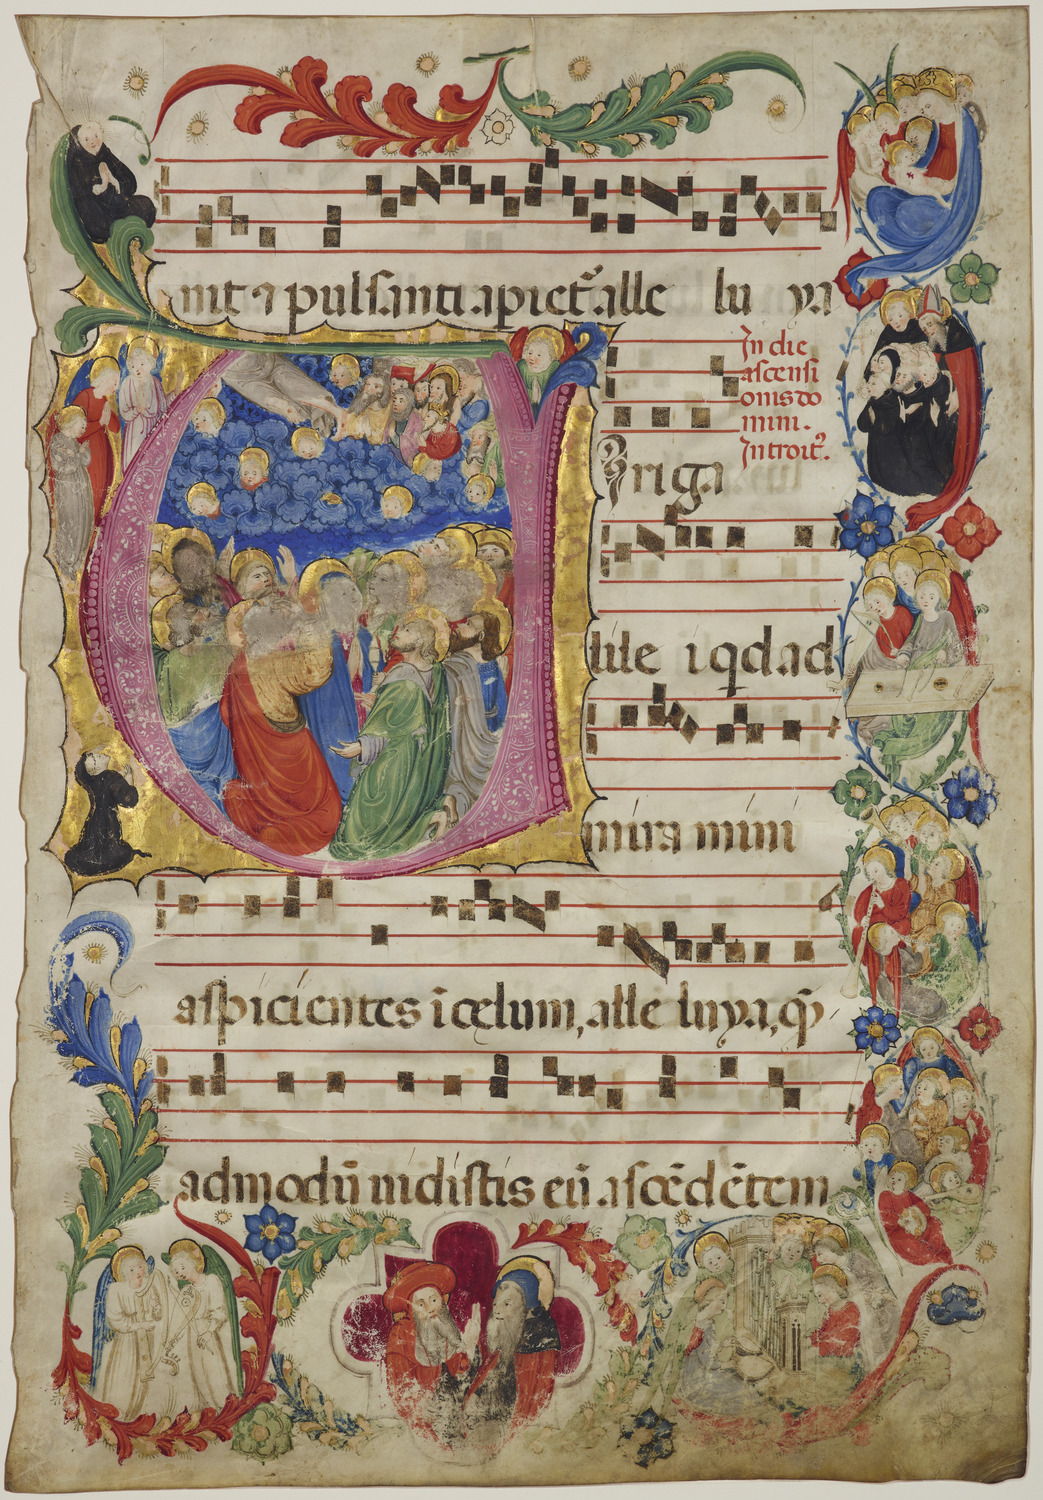 nit ⁊ pulsanti apiet᷑ alle lu ya
In die
ascensi
onis do
mini.
Introit᷑.
Viri ga
lile i q̄d ad
mira mini
aspicientes ī celum, alle luya, q̄
admodū uidistis eū ascēdētem